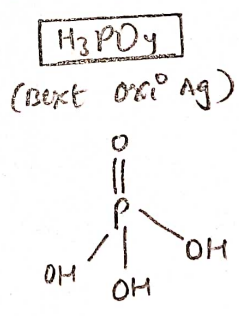 H₃PO₄
(Best oxi° Ag)
O
P
OH OH
OH